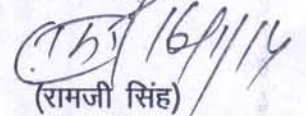 16/1/14
(रामजी सिंह)